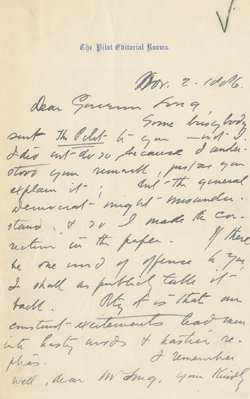 The Pilot Editorial Rooms.
Nov. 2-1886.
Dear Governor Long
Some busybody
sent The Pilot to you — not I.
I did not do so because I under-
stood your remark, just as you
explain it; but the general
Democrat might misunder-
stand & so I made the cor-
rection in the paper. If there
be one word of offence to you
I shall as publicly take it
back. Pity it is that our
constant excitements lead men
into hasty words & hastier re-
plies. I remember
well, dear Mr Long, your kindly